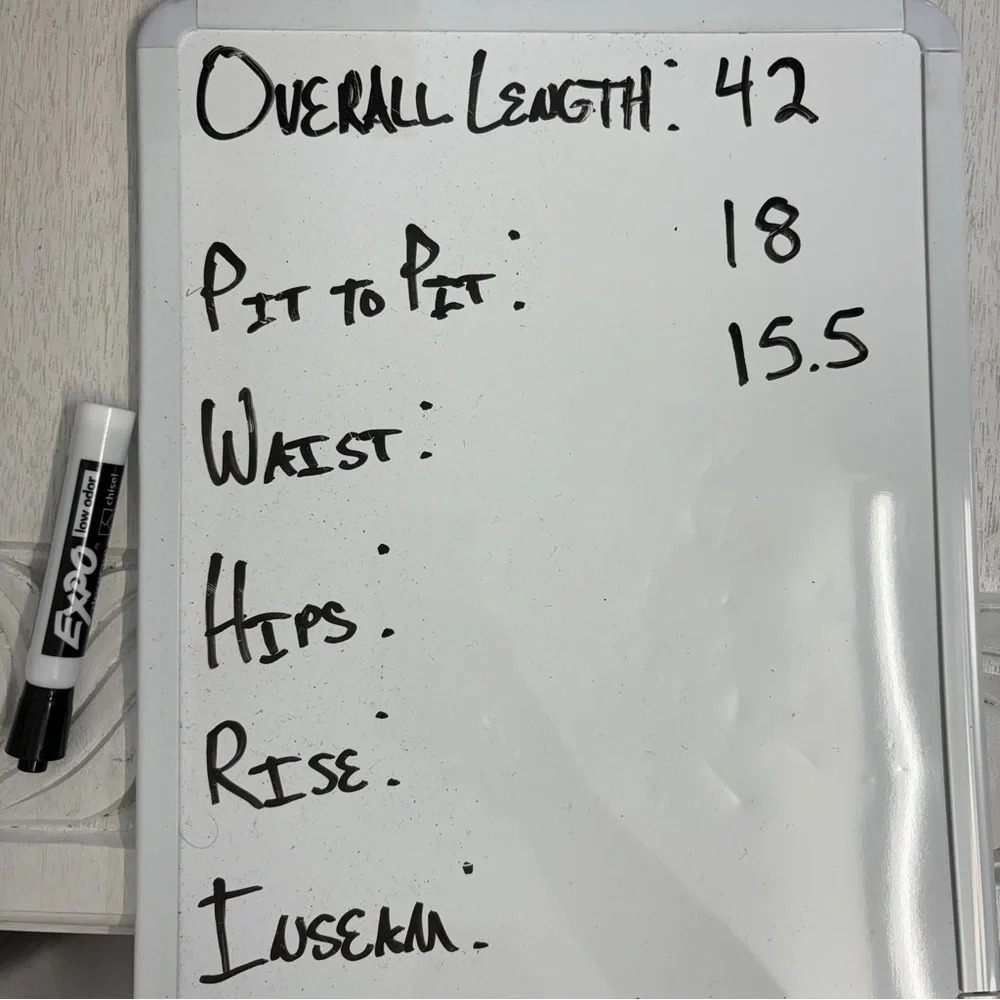 OVERALL LENGTH: 42
PIT TO PIT: 18
WAIST: 15.5
HIPS:
RISE:
INSEAM:
EXPO low odor chisel